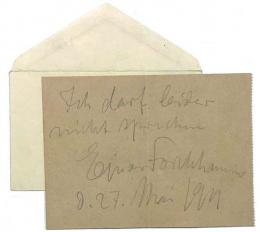 Ich darf leider
nicht sprechen
Ejnar Forchhammer
d. 27. Mai 1911